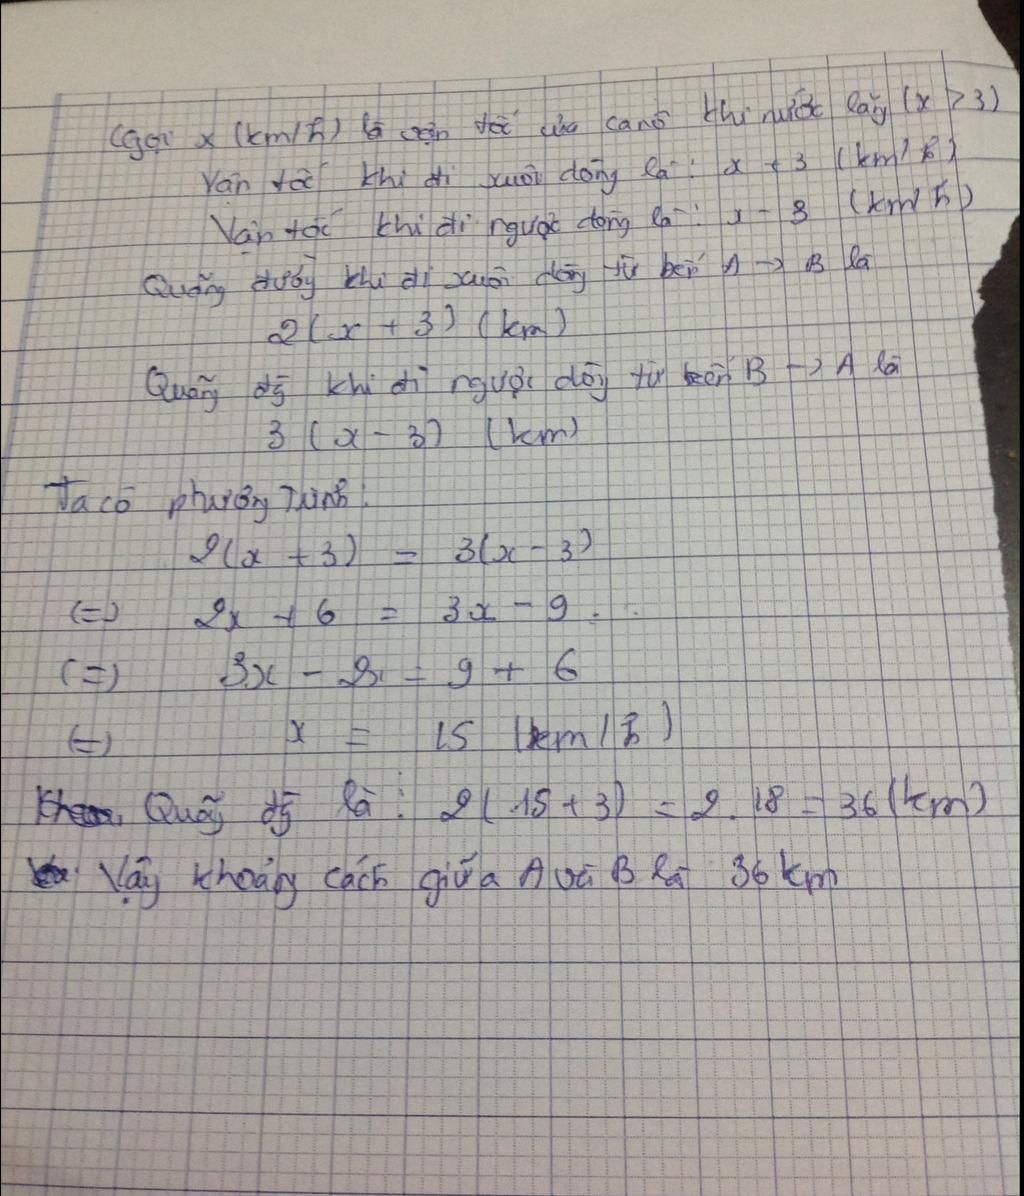 Gọi x (km/h) là vận tốc của canô khi nước lặng (x > 3)
Vận tốc khi đi xuôi dòng là: x + 3 (km/h)
Vận tốc khi đi ngược dòng là: x - 3 (km/h)
Quãng đường khi đi xuôi dòng từ bến A → B là
2(x + 3) (km)
Quãng đg khi đi ngược dòng từ bến B → A là
3 (x - 3) (km)
Ta có phương trình:
2(x + 3) = 3(x - 3)
(=) 2x + 6 = 3x - 9
(=) 3x - 2x = 9 + 6
(=) x = 15 (km/h)
Quãng đg là: 2(15 + 3) = 2.18 = 36 (km)
Vậy khoảng cách giữa A và B là 36 km